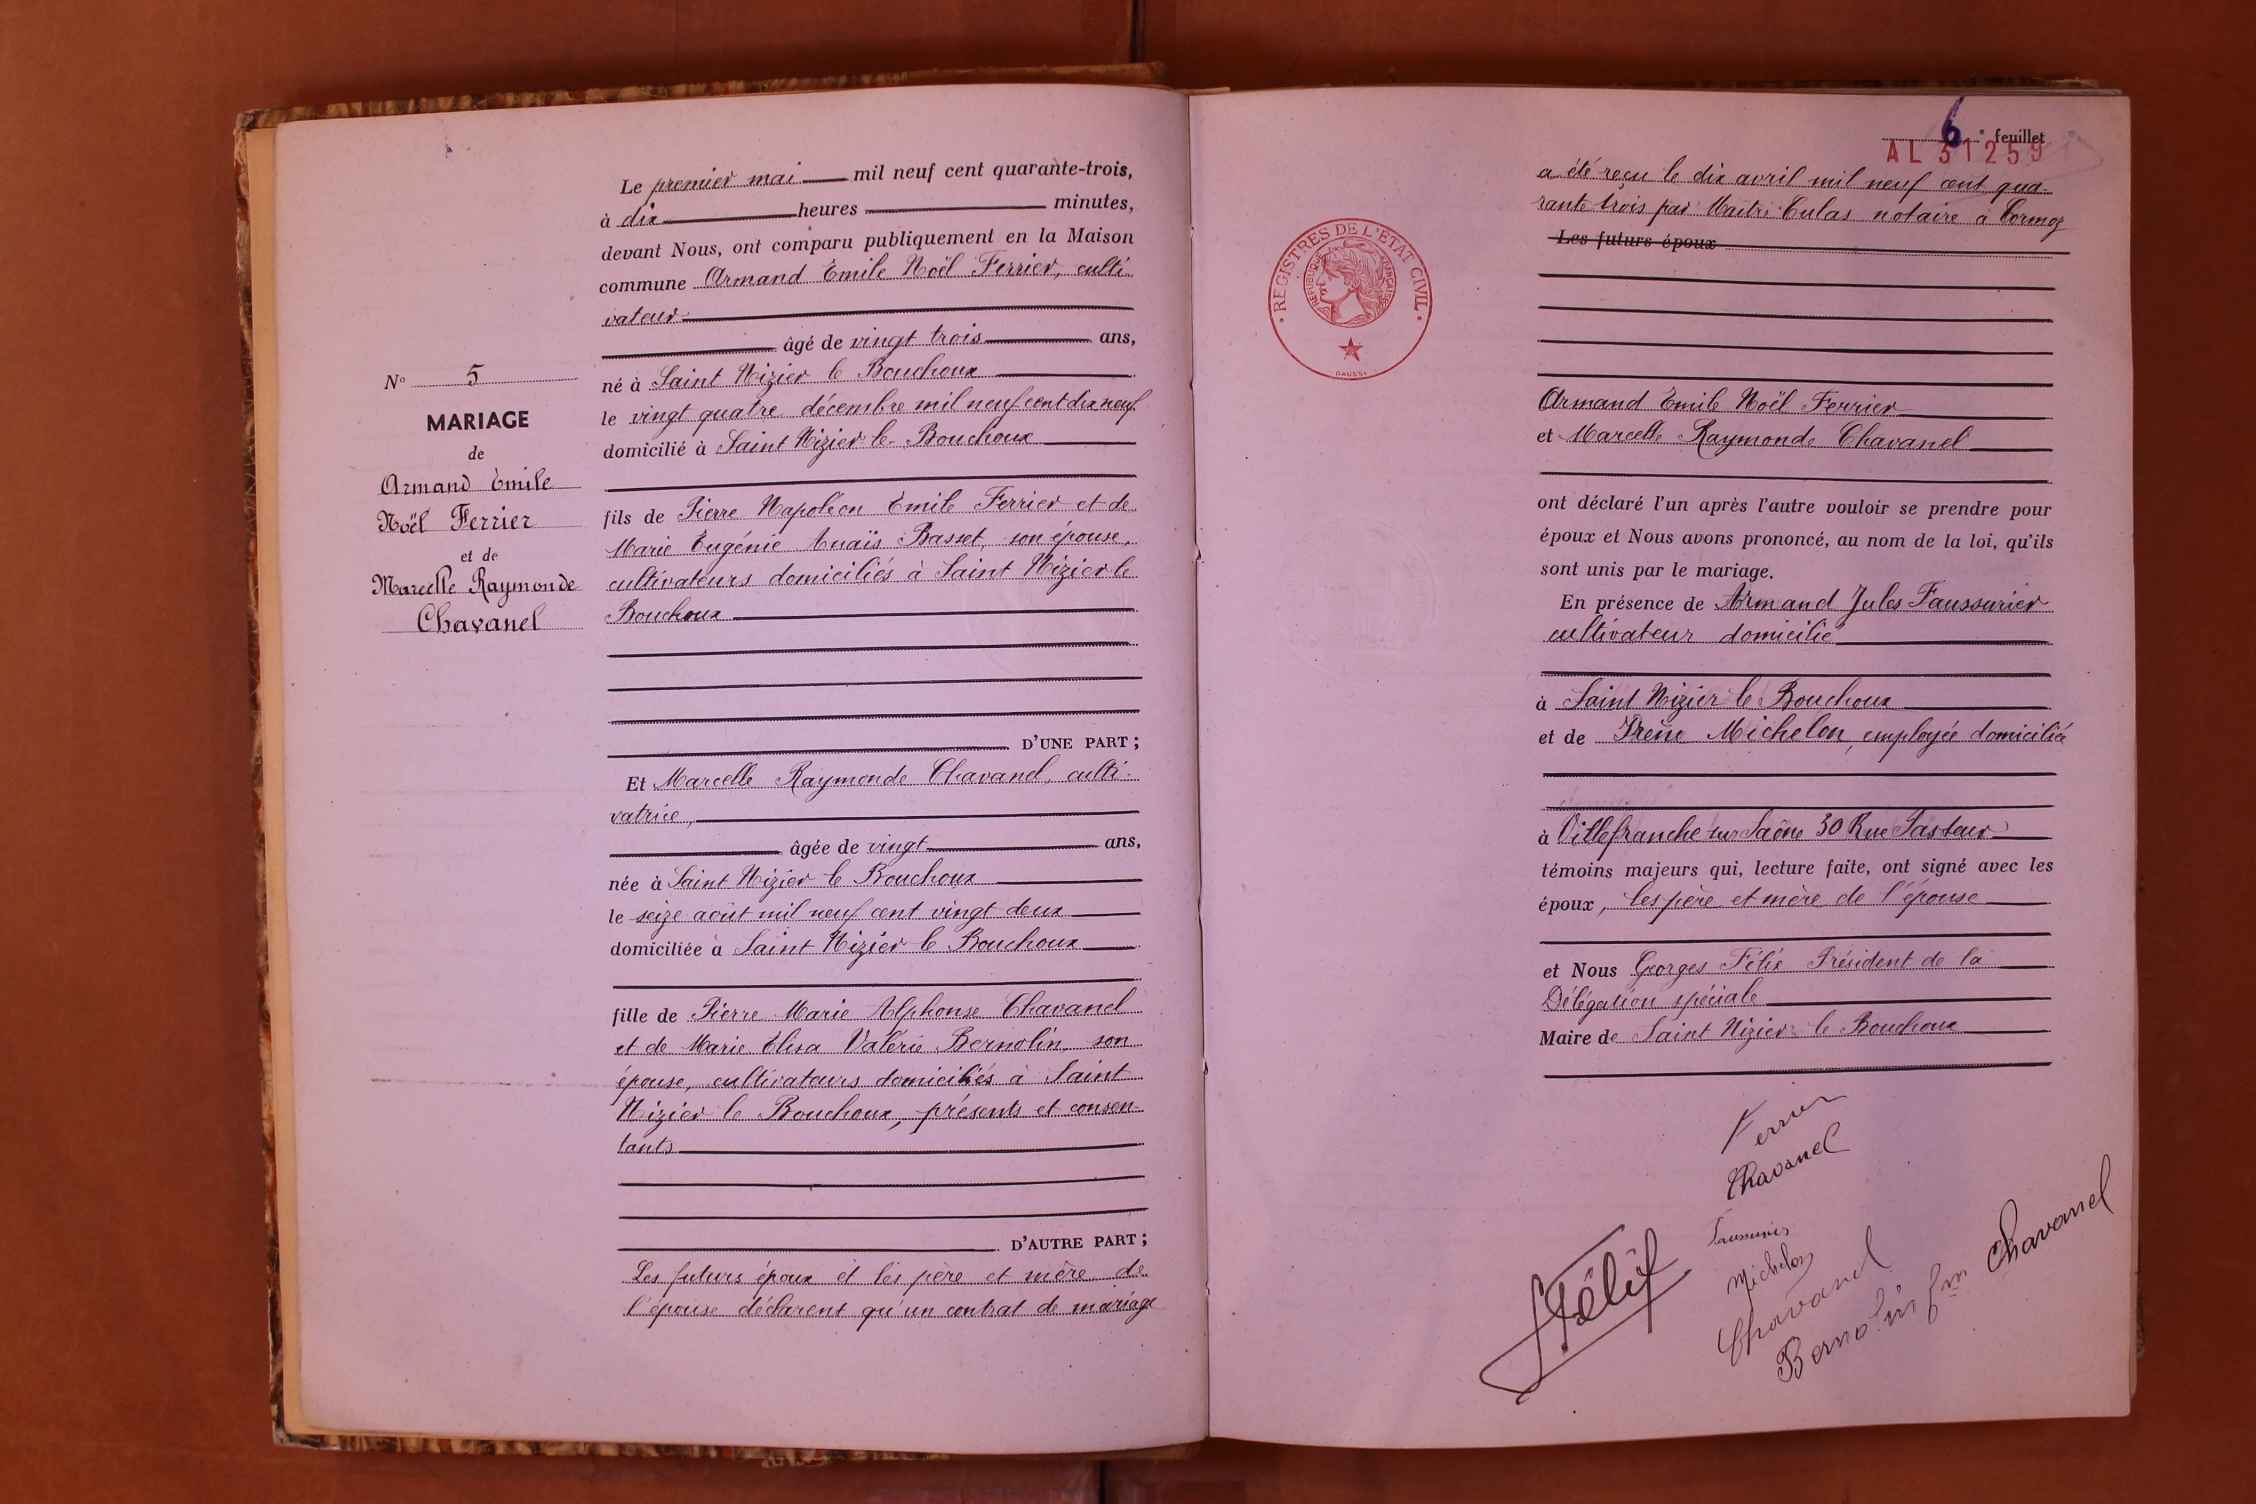 Le premier mai mil neuf cent quarante-trois,
à dix heures minutes,
devant Nous, ont comparu publiquement en la Maison
commune Armand Emile Noël Ferrier, culti-
vateur
âgé de vingt trois ans,
né à Saint Nizier le Bouchoux
le vingt quatre décembre mil neuf cent dix neuf
domicilié à Saint Nizier le Bouchoux
fils de Pierre Napoléon Emile Ferrier et de
Marie Eugénie Anaïs Basset, son épouse,
cultivateurs domiciliés à Saint Nizier le
Bouchoux
D'UNE PART ;
Et Marcelle Raymonde Chavanel, culti-
vatrice,
âgée de vingt ans,
née à Saint Nizier le Bouchoux
le seize août mil neuf cent vingt deux
domiciliée à Saint Nizier le Bouchoux
fille de Pierre Marie Alphonse Chavanel
et de Marie Elisa Valérie Bernolin, son
épouse, cultivateurs domiciliés à Saint
Nizier le Bouchoux, présents et consen-
tants
D'AUTRE PART ;
Les futurs époux et les père et mère de
l'épouse déclarent qu'un contrat de mariage
N° 5
MARIAGE
de
Armand Emile
Noël Ferrier
et de
Marcelle Raymonde
Chavanel
6e feuillet
AL 31259
a été reçu le dix avril mil neuf cent qua-
rante trois par Maître Culas notaire à Cormoz
Les futurs époux
REGISTRES DE L'ETAT CIVIL
REPUBLIQUE FRANÇAISE
Armand Emile Noël Ferrier
et Marcelle Raymonde Chavanel
ont déclaré l'un après l'autre vouloir se prendre pour
époux et Nous avons prononcé, au nom de la loi, qu'ils
sont unis par le mariage.
En présence de Armand Jules Faussurier
cultivateur domicilié
à Saint Nizier le Bouchoux
et de Irène Michelon, employée domiciliée
à Villefranche sur Saône 30 Rue Pasteur
témoins majeurs qui, lecture faite, ont signé avec les
époux, les père et mère de l'épouse
et Nous Georges Félix Président de la
Délégation spéciale
Maire de Saint Nizier le Bouchoux
Ferrier
Chavanel
Faussurier
Michelon
Félix
Chavanel
Bernolin fm Chavanel